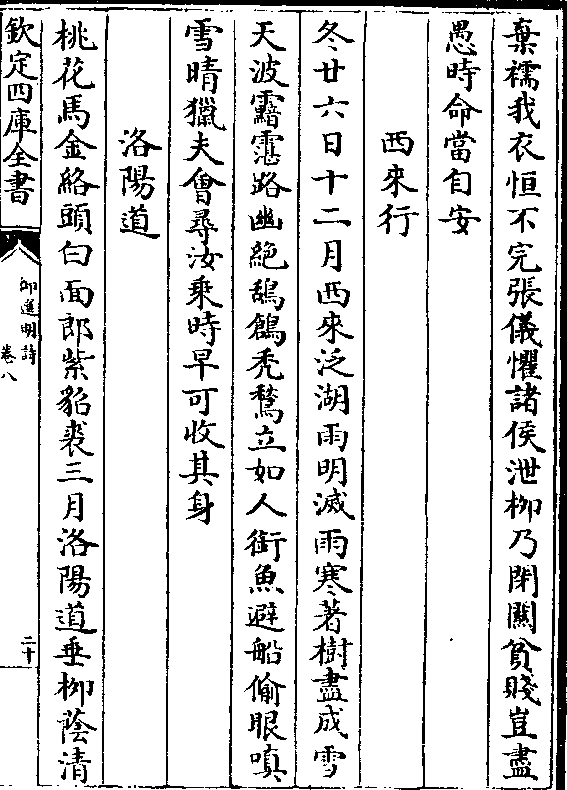 棄襦我衣恒不完張儀懼諸侯泄柳乃閉關貧賤豈盡
愚時命當自安
西來行
冬廿六日十二月西來泛湖雨明滅雨寒著樹盡成雪
天波靉靆路幽絶鴰鶬禿鶖立如人銜魚避船偷眼嗔
雪晴獵夫會尋汝乘時早可收其身
洛陽道
桃花馬金絡頭白面郎紫貂裘三月洛陽道垂柳蔭清
欽定四庫全書
御選明詩
卷八
二十